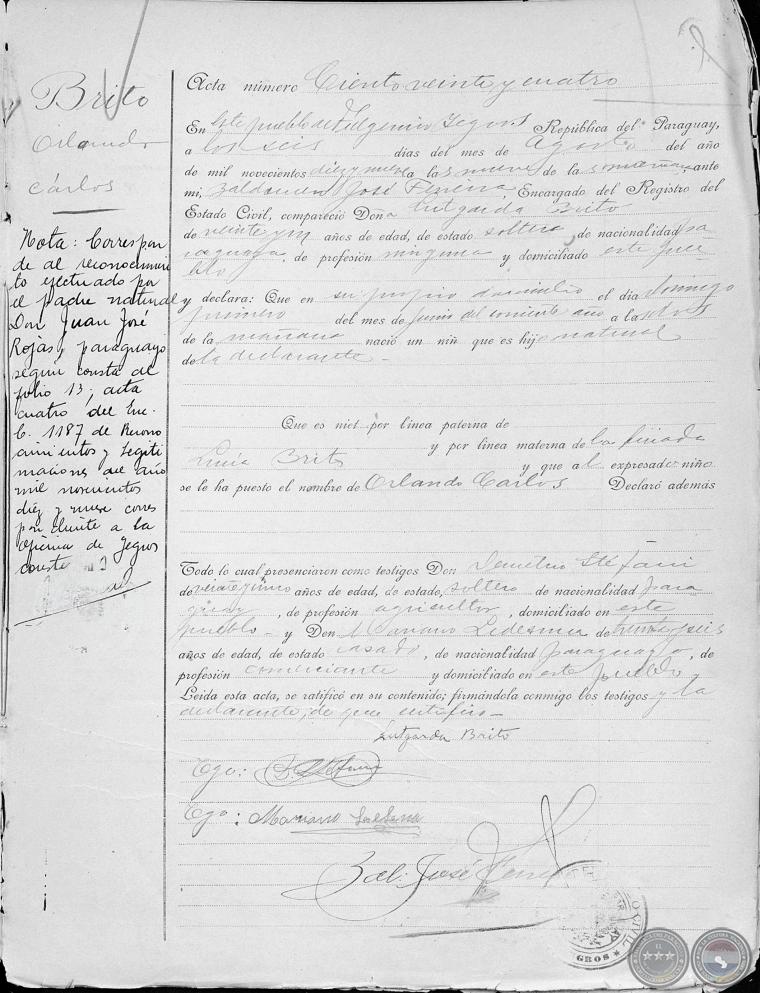 Brito
Orlando
Cárlos
Nota: Correspon
de al reconocimien
to efectuado por
el padre natural
Don Juan José
Rojas, paraguayo
según consta al
folio 13, acta
cuatro del
1187 de Recono
cimientos y Legiti
maciones del año
mil novecientos
diez y nueve corres
pondiente a la
oficina de Yegros
conste
Acta número Ciento veinte y cuatro
En este pueblo de Fulgencio Yegros República del Paraguay,
a los seis días del mes de Agosto del año
de mil novecientos diez y nueve a las nueve de la mañana, ante
mi, José Encargado del Registro del
Estado Civil, compareció Doña Lutgarda Brito
de veinte y un años de edad, de estado soltera, de nacionalidad pa
raguaya, de profesión ninguna y domiciliado este pue
blo
y declara: Que en su propio domicilio el día domingo
primero del mes de junio del corriente año a la dos
de la mañana nació un niñ que es hijo natural
de la declarante -
Que es niet por linea paterna de
y por linea materna de la finada
Lucía Brito y que al expresado niño
se le ha puesto el nombre de Orlando Carlos Declaró además
Todo lo cual presenciaron como testigos Don Demetrio Stéfani
de años de edad, de estado, soltero de nacionalidad para
guaya, de profesión agricultor, domiciliado en este
pueblo - y Don Mariano Ledesma de treinta y seis
años de edad, de estado casado, de nacionalidad paraguayo, de
profesión comerciante y domiciliado en este pueblo
Leida esta acta, se ratificó en su contenido; firmándola conmigo los testigos y la
declarante, de que certifico -
Lutgarda Brito
Tgo:
Tgo: Mariano Ledesma
Bal. José
O CIVIL
GROS